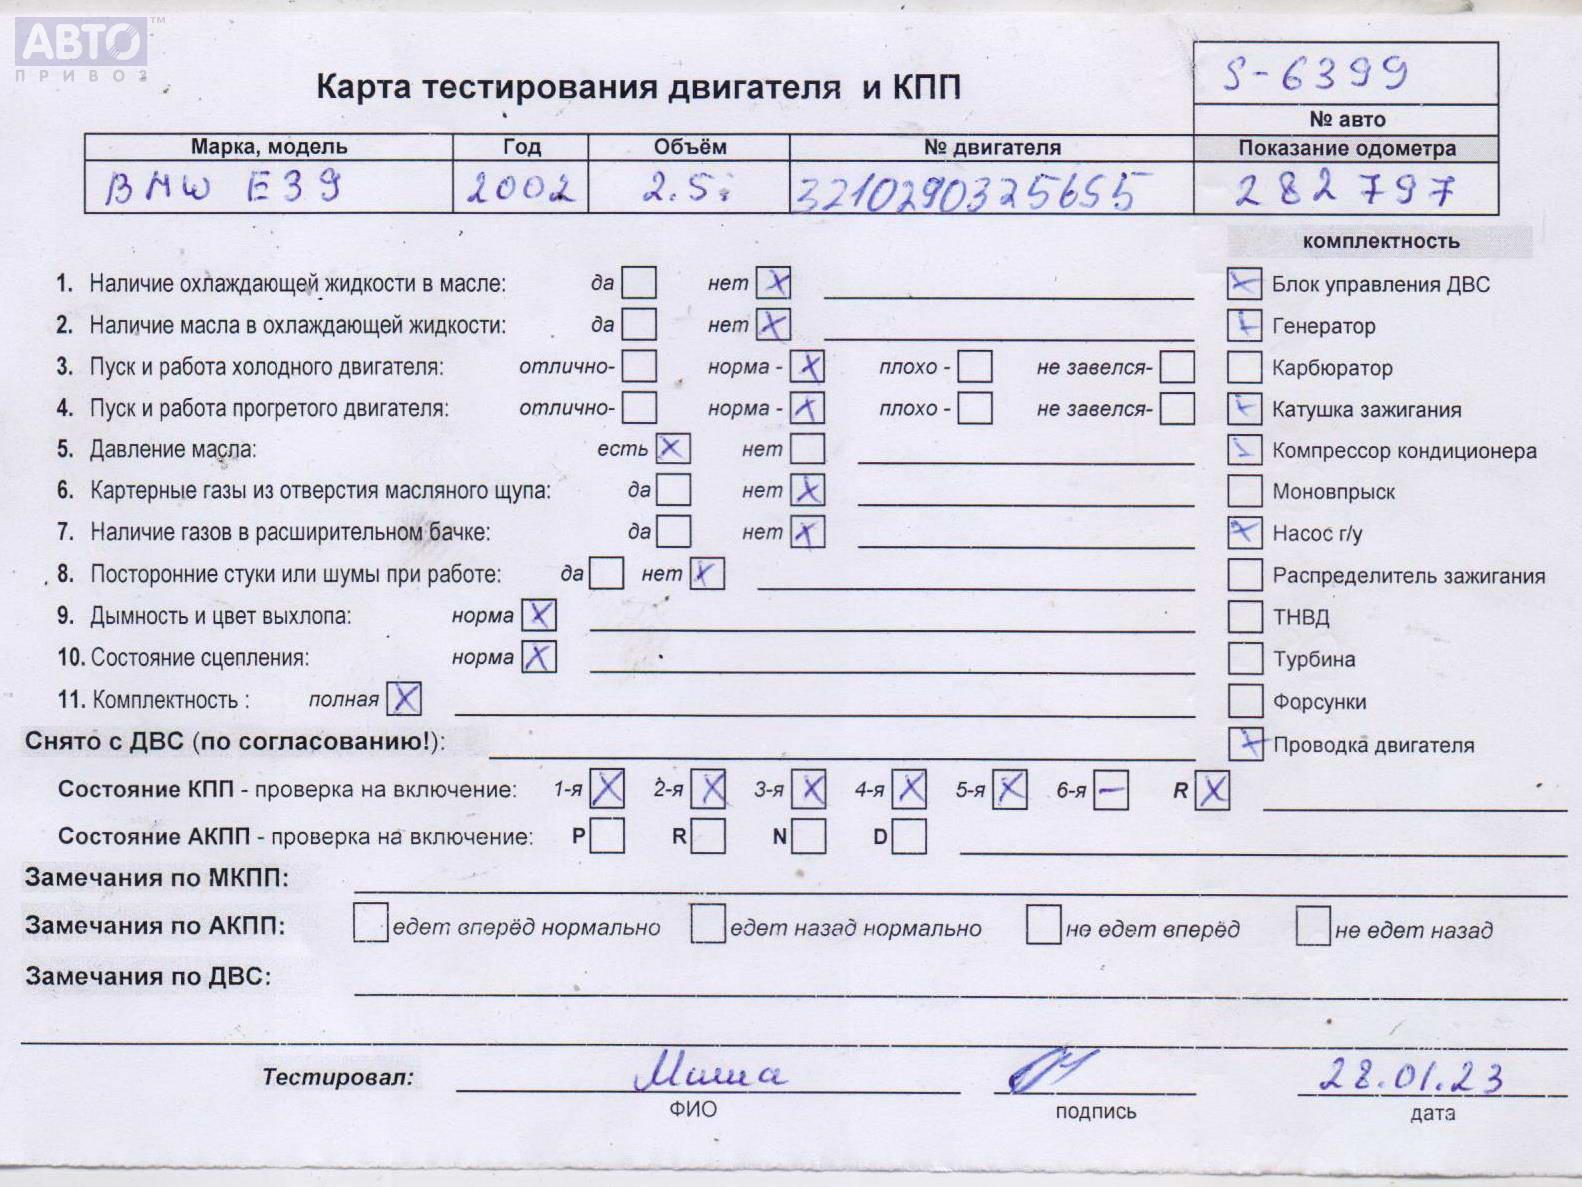 АВТО ПРИВОЗ ™
Карта тестирования двигателя и КПП
S-6399
№ авто
Марка, модель Год Объём № двигателя Показание одометра
BMW E39 2002 2.5i 3210290325655 282797
комплектность
1. Наличие охлаждающей жидкости в масле: да нет X
Блок управления ДВС
2. Наличие масла в охлаждающей жидкости: да нет X
Генератор
3. Пуск и работа холодного двигателя: отлично- норма - X плохо - не завелся-
Карбюратор
4. Пуск и работа прогретого двигателя: отлично- норма - X плохо - не завелся-
Катушка зажигания
5. Давление масла: есть X нет
Компрессор кондиционера
6. Картерные газы из отверстия масляного щупа: да нет X
Моновпрыск
7. Наличие газов в расширительном бачке: да нет X
Насос г/у
8. Посторонние стуки или шумы при работе: да нет X
Распределитель зажигания
9. Дымность и цвет выхлопа: норма X
ТНВД
10. Состояние сцепления: норма X
Турбина
11. Комплектность : полная X
Форсунки
Снято с ДВС (по согласованию!):
Проводка двигателя
Состояние КПП - проверка на включение: 1-я X 2-я X 3-я X 4-я X 5-я X 6-я – R X
Состояние АКПП - проверка на включение: P R N D
Замечания по МКПП:
Замечания по АКПП: едет вперёд нормально едет назад нормально не едет вперёд не едет назад
Замечания по ДВС:
Тестировал: 28.01.23
ФИО подпись дата